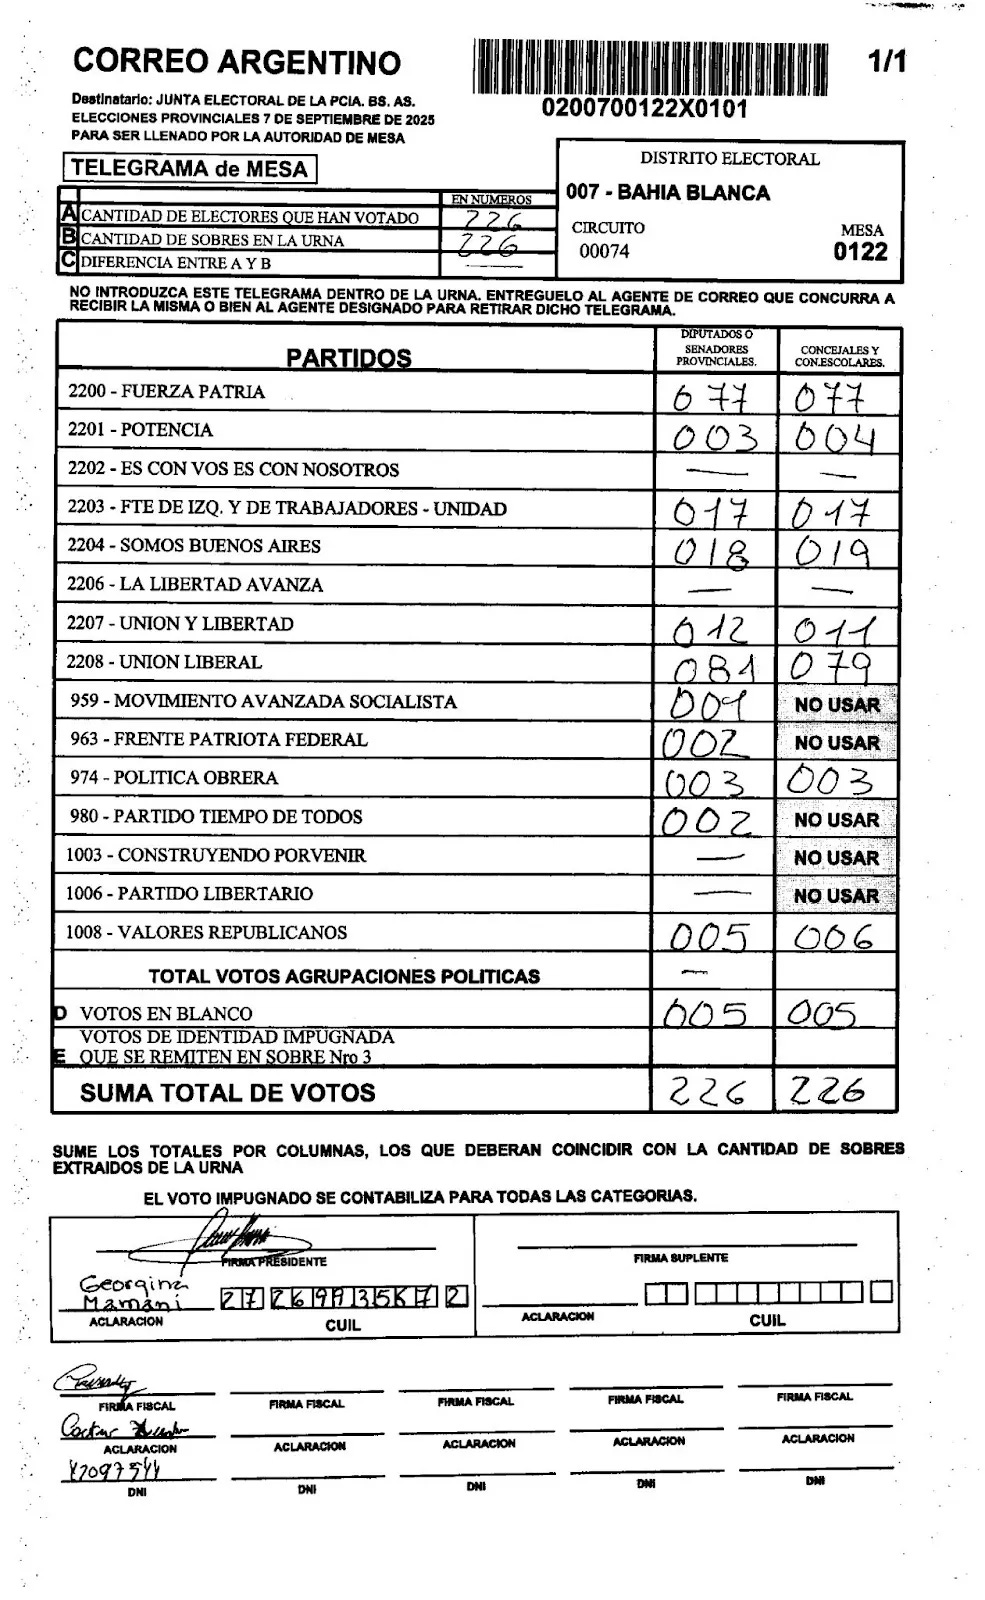 CORREO ARGENTINO
1/1
0200700122X0101
Destinatario: JUNTA ELECTORAL DE LA PCIA. BS. AS.
ELECCIONES PROVINCIALES 7 DE SEPTIEMBRE DE 2025
PARA SER LLENADO POR LA AUTORIDAD DE MESA
TELEGRAMA de MESA
EN NUMEROS
A CANTIDAD DE ELECTORES QUE HAN VOTADO 226
B CANTIDAD DE SOBRES EN LA URNA 226
C DIFERENCIA ENTRE A Y B —
DISTRITO ELECTORAL
007 - BAHIA BLANCA
CIRCUITO MESA
00074 0122
NO INTRODUZCA ESTE TELEGRAMA DENTRO DE LA URNA. ENTREGUELO AL AGENTE DE CORREO QUE CONCURRA A
RECIBIR LA MISMA O BIEN AL AGENTE DESIGNADO PARA RETIRAR DICHO TELEGRAMA.
PARTIDOS
DIPUTADOS O
SENADORES
PROVINCIALES.
CONCEJALES Y
CON.ESCOLARES.
2200 - FUERZA PATRIA 077 077
2201 - POTENCIA 003 004
2202 - ES CON VOS ES CON NOSOTROS — —
2203 - FTE DE IZQ. Y DE TRABAJADORES - UNIDAD 017 017
2204 - SOMOS BUENOS AIRES 018 019
2206 - LA LIBERTAD AVANZA — —
2207 - UNION Y LIBERTAD 012 011
2208 - UNION LIBERAL 081 079
959 - MOVIMIENTO AVANZADA SOCIALISTA 001 NO USAR
963 - FRENTE PATRIOTA FEDERAL 002 NO USAR
974 - POLITICA OBRERA 003 003
980 - PARTIDO TIEMPO DE TODOS 002 NO USAR
1003 - CONSTRUYENDO PORVENIR — NO USAR
1006 - PARTIDO LIBERTARIO — NO USAR
1008 - VALORES REPUBLICANOS 005 006
TOTAL VOTOS AGRUPACIONES POLITICAS —
D VOTOS EN BLANCO 005 005
VOTOS DE IDENTIDAD IMPUGNADA
E QUE SE REMITEN EN SOBRE Nro 3
SUMA TOTAL DE VOTOS 226 226
SUME LOS TOTALES POR COLUMNAS, LOS QUE DEBERAN COINCIDIR CON LA CANTIDAD DE SOBRES
EXTRAIDOS DE LA URNA
EL VOTO IMPUGNADO SE CONTABILIZA PARA TODAS LAS CATEGORIAS.
FIRMA PRESIDENTE
Georgina
Mamani
ACLARACION
CUIL
FIRMA SUPLENTE
ACLARACION
CUIL
FIRMA FISCAL FIRMA FISCAL FIRMA FISCAL FIRMA FISCAL FIRMA FISCAL
ACLARACION ACLARACION ACLARACION ACLARACION ACLARACION
DNI DNI DNI DNI DNI